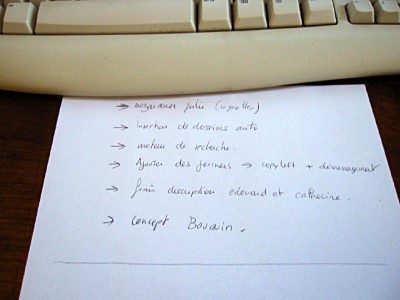 → julie (vignettes)
→ insertion de dossiers auto
→ moteur de recherche.
→ Ajouter des → copyleft + déménagement
→ finir description edouard et catherine.
→ concept